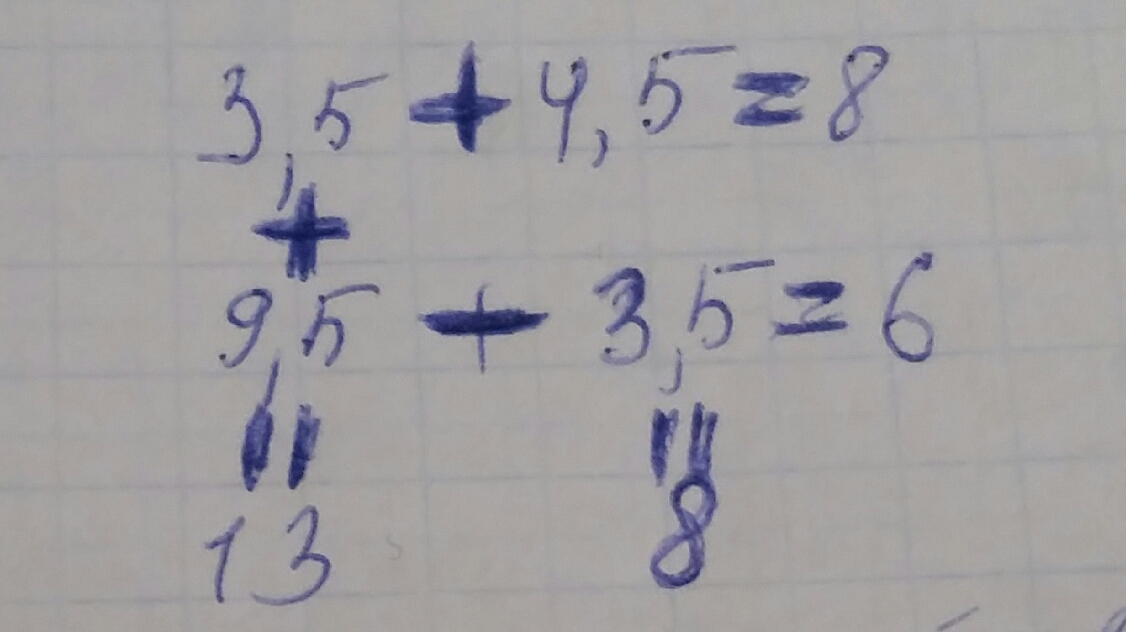 3,5 + 4,5 = 8
+
9,5 - 3,5 = 6
= =
13 8